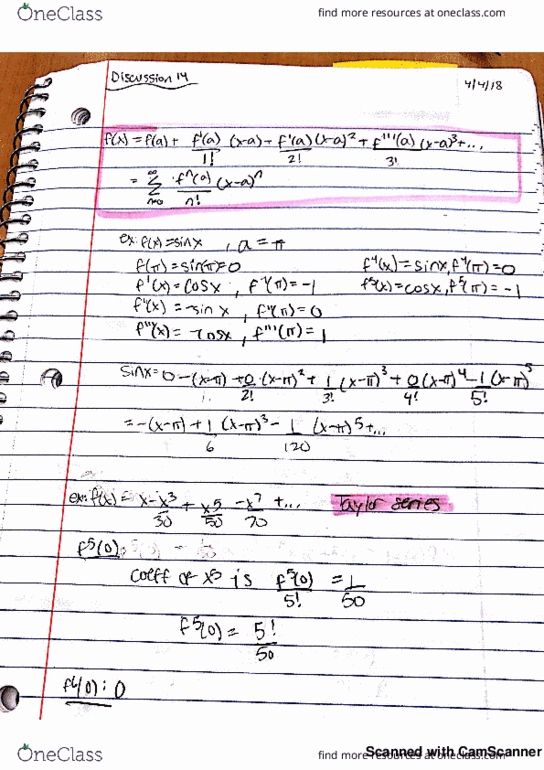 OneClass
find more resources at oneclass.com
Discussion 14
4/4/18
f(x) = f(a) + f'(a)/1! (x-a) + f'(a)/2! (x-a)² + f'''(a)/3! (x-a)³ + ...
= ∞ Σ n=0 fⁿ(a)/n! (x-a)ⁿ
ex: f(x) = sinx , a = π
f(π) = sin(π) = 0
f⁴(x) = sinx, f⁴(π) = 0
f'(x) = cosx , f'(π) = -1
f⁵(x) = cosx, f⁵(π) = -1
f''(x) = -sin x , f''(π) = 0
f'''(x) = -cosx , f'''(π) = 1
sinx = 0 - (x-π) + 0/2! · (x-π)² + 1/3! (x-π)³ + 0/4! (x-π)⁴ - 1/5! (x-π)⁵
= -(x-π) + 1/6 (x-π)³ - 1/120 (x-π)⁵ + ...
ex: f(x) = x - x³/30 + x⁵/50 - x⁷/70 + ...
Taylor series
f⁵(0):
coeff of x⁵ is f⁵(0)/5! = 1/50
f⁵(0) = 5!/50
f⁶(0) : 0
Scanned with CamScanner
OneClass
find more resources at oneclass.com